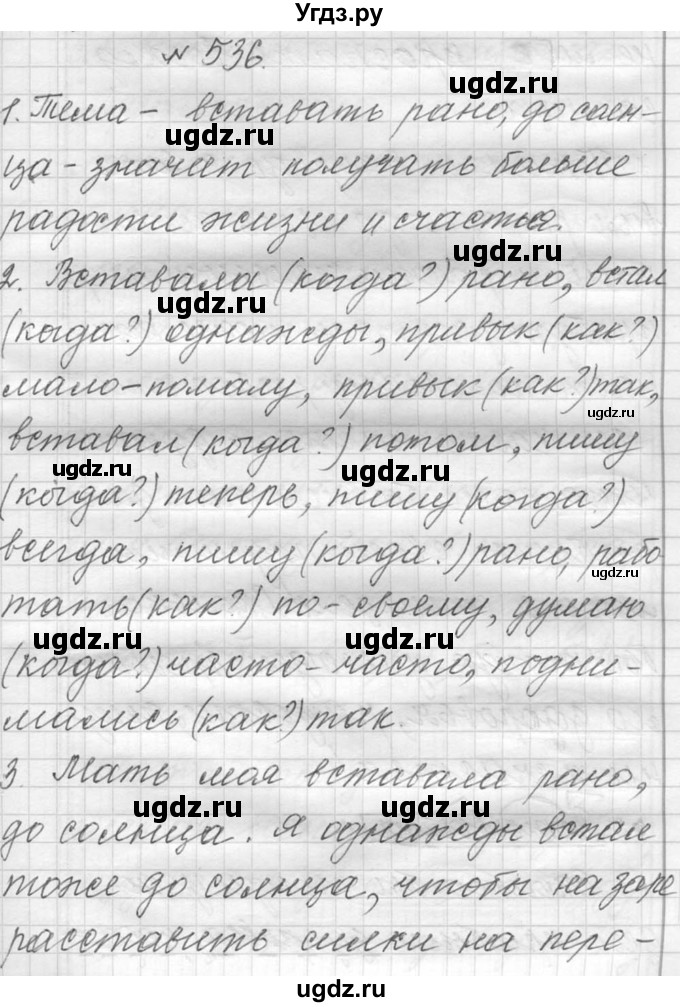 Угдз.ру
№ 536.
1. Тема - вставать рано, до солн-
ца - значит получать больше
радости жизни и счастья.
2. Вставала (когда?) рано, встал
(когда?) однажды, привык (как?)
мало-помалу, привык (как?) так,
вставал (когда?) потом, пишу
(когда?) теперь, пишу (когда?)
всегда, пишу (когда?) рано, рабо
тать (как?) по-своему, думаю
(когда?) часто-часто, подни-
мались (как?) так.
3. Мать моя вставала рано,
до солнца. Я однажды встал
тоже до солнца, чтобы на заре
расставить силки на пере-
ugdz.ru
ugdz.ru
ugdz.ru
ugdz.ru
ugdz.ru
ugdz.ru
ugdz.ru
ugdz.ru
ugdz.ru
ugdz.ru
ugdz.ru
ugdz.ru
ugdz.ru
ugdz.ru